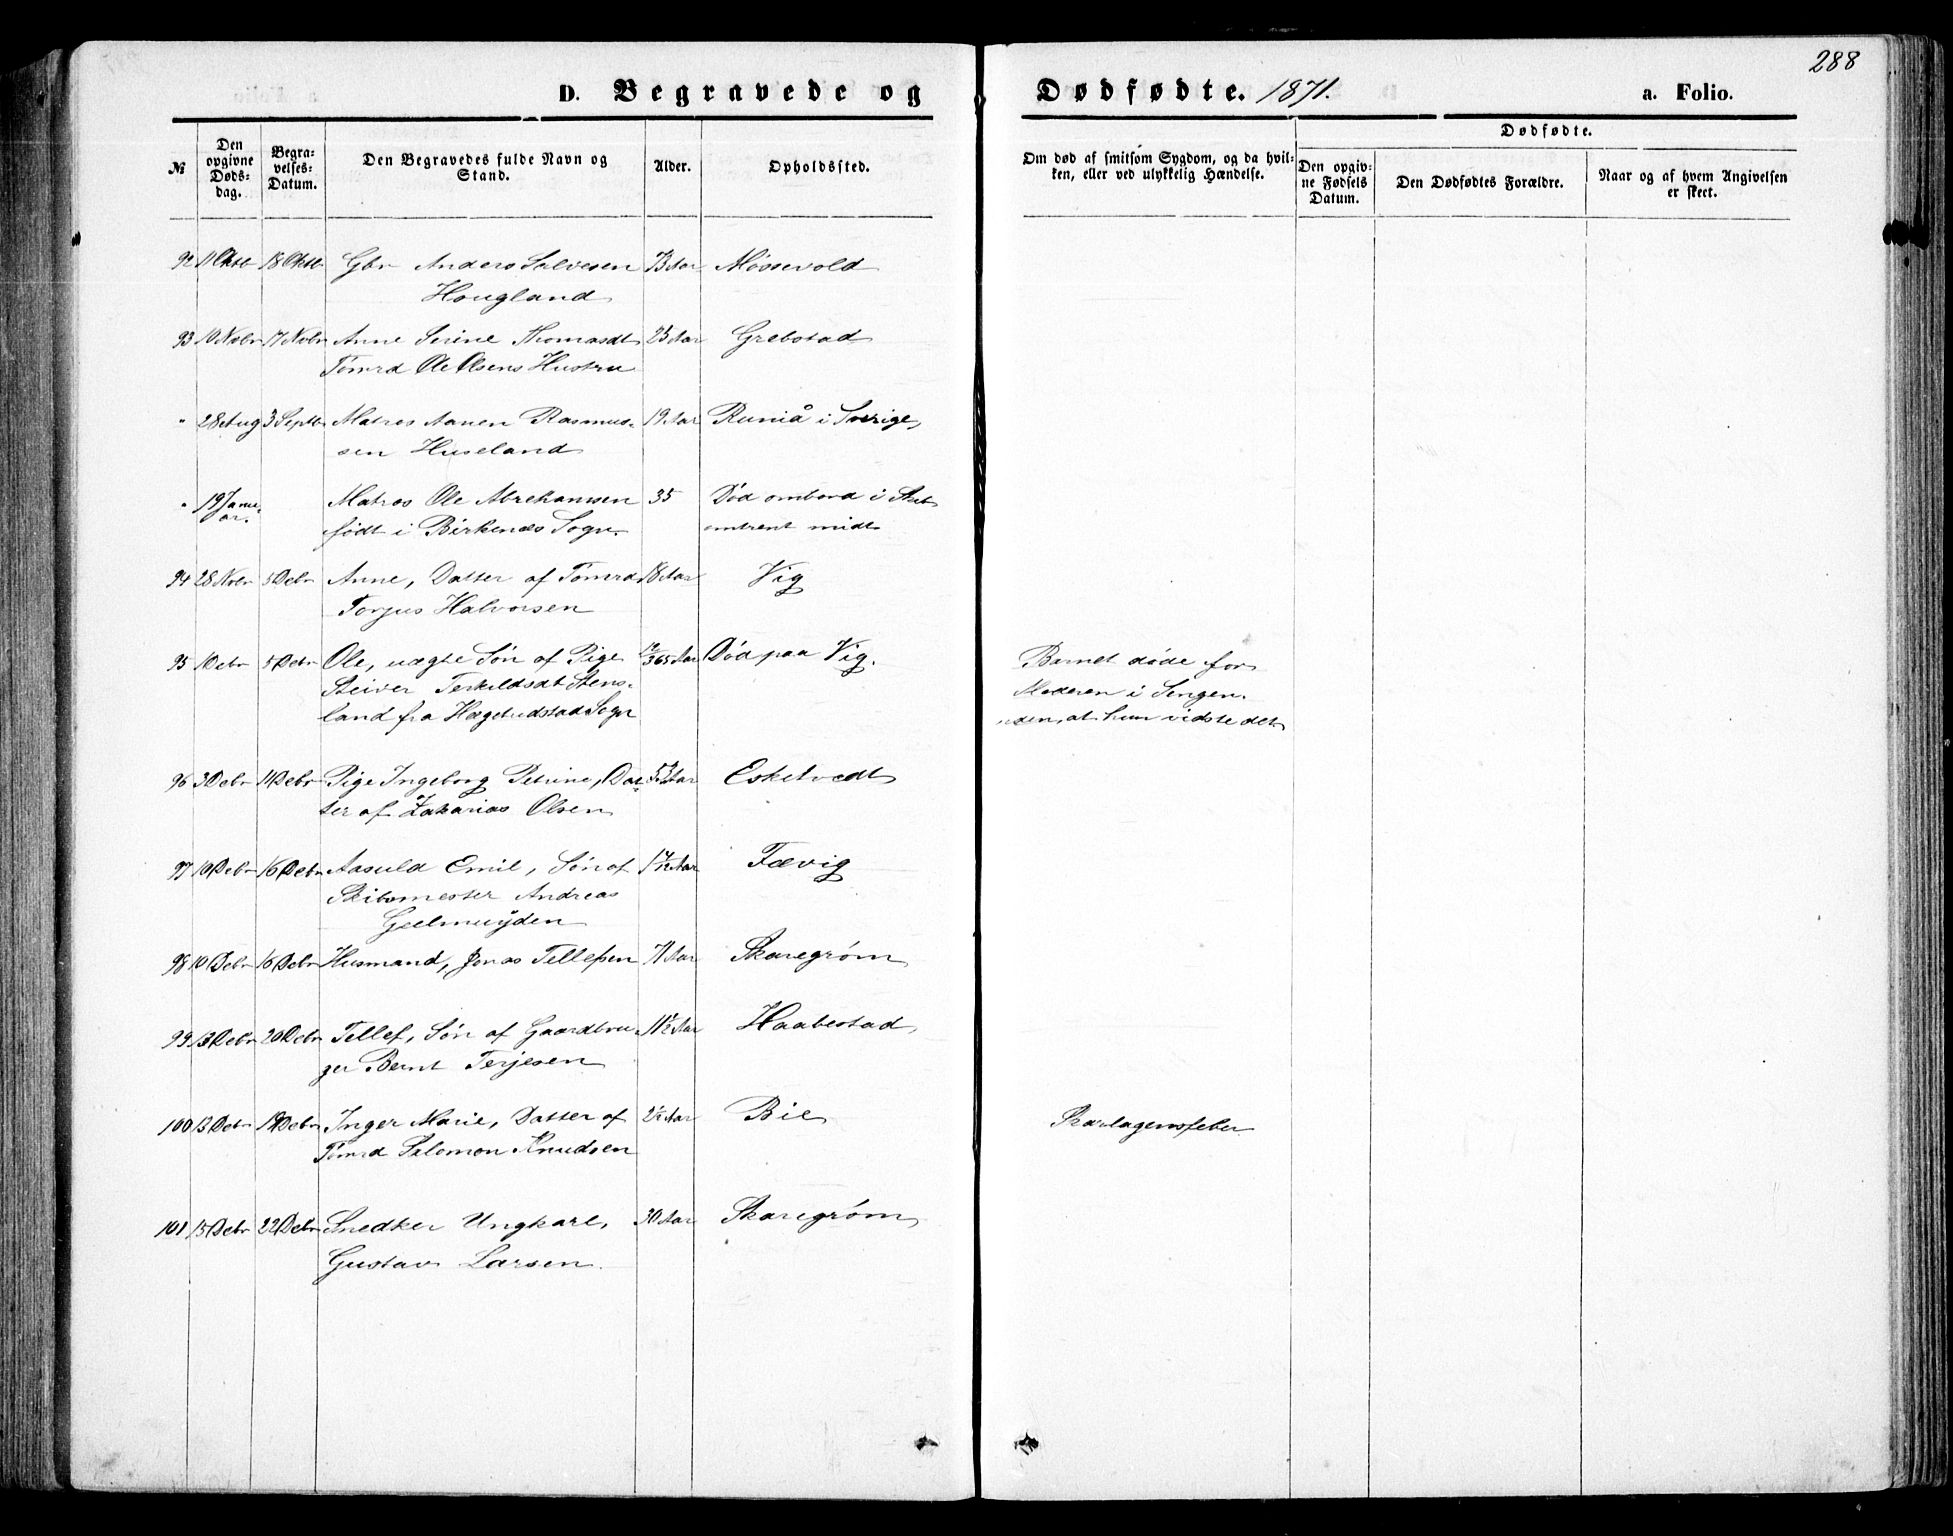 288
D. Begravede og Dødfødte. 1871. a. Folio.
№
Den opgivne Dødsdag.
Begravelses-Datum.
Den Begravedes fulde Navn og Stand.
Alder.
Opholdssted.
Om død af smitsom Sygdom, og da hvilken, eller ved ulykkelig Hændelse.
Dødfødte.
Den opgivne Fødsels Datum.
Den Dødfødtes Forældre.
Naar og af hvem Angivelsen er skeet.
92 11 Oktb 18 Oktb Gbr Anders Salvesen 73 Aar Mossevold
Hougland
93 10 Nobr 17 Nobr Anne Serine Thomasdt 25 Aar Grebstad
Tømrd Ole Olsens Hustru
" 28 Aug 3 Septb Matros Aanen Rasmus- 19 Aar Runiå i Sverige
sen Huseland
" 19 Janu- Matros Ole Abrehamsen 35 Død ombord i Skib
ar. født i Birkenes Sogn. omtrent midt
94 28 Nobr 5 Debr Anne, Datter af Tømrd 18 Aar Vig
Torjus Halvorsen
95 1 Debr 5 Debr Ole, uægte Søn af Pige /365 Aar Død paa Vig. Barnet døde for
Steiver Terkildsdt Stens- Moderen i Sengen.
land fra Hægebudstad Sogn uden, at hun vidste det
96 3 Debr 11 Debr Pige Ingeborg Petrine, Dat- Aar Eskelvedt
ter af Zakarias Olsen
97 10 Debr 16 Debr Aasuld Emil, Søn af Aar Fævig
Skibsmester Andreas
Geelmuÿden
98 10 Debr 16 Debr Husmand, Jonas Telleßen 71 Aar Skaregrøm
99 13 Debr 20 Debr Tellef, Søn af Gaardbru- 11½ Aar Haabestad
ger Bernt Terjesen
100 13 Debr 19 Debr Inger Marie, Datter af 2½ Aar Bie Skarlagensfeber
Tømrd Salomon Knudsen
101 15 Debr 22 Debr Snedker Ungkarl, 30 Aar Skaregrøm
Gustav Larsen.